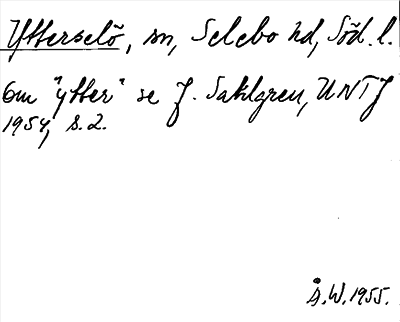 Ytterselö, sn, Selebo hd, Söd. l.
Om "ytter" se J. Sahlgren, UNTJ
1954, s. 2.
Å.W. 1955.